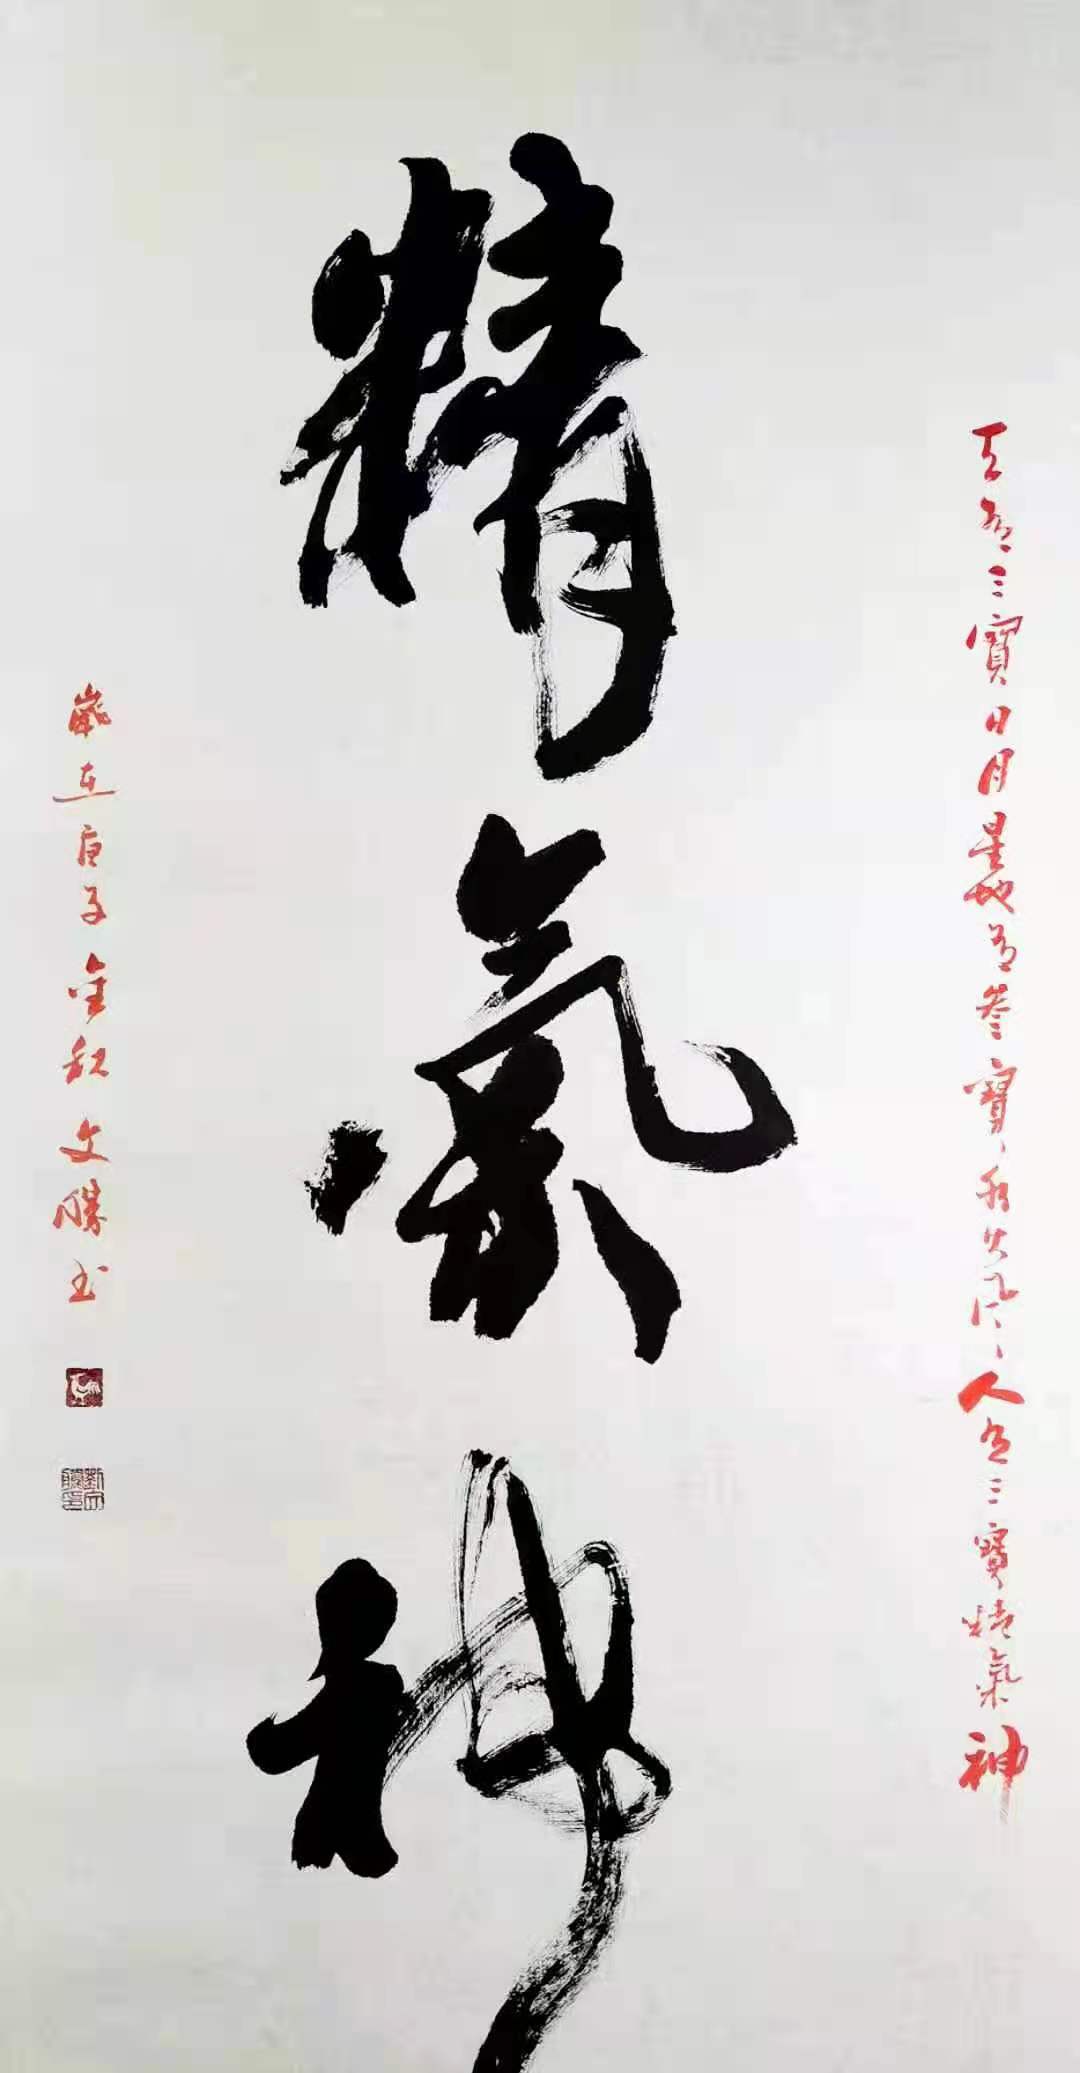 天有三寶日月星地有叁寶水火風人有三寶精氣神
精氣神
歲在庚子金秋文书